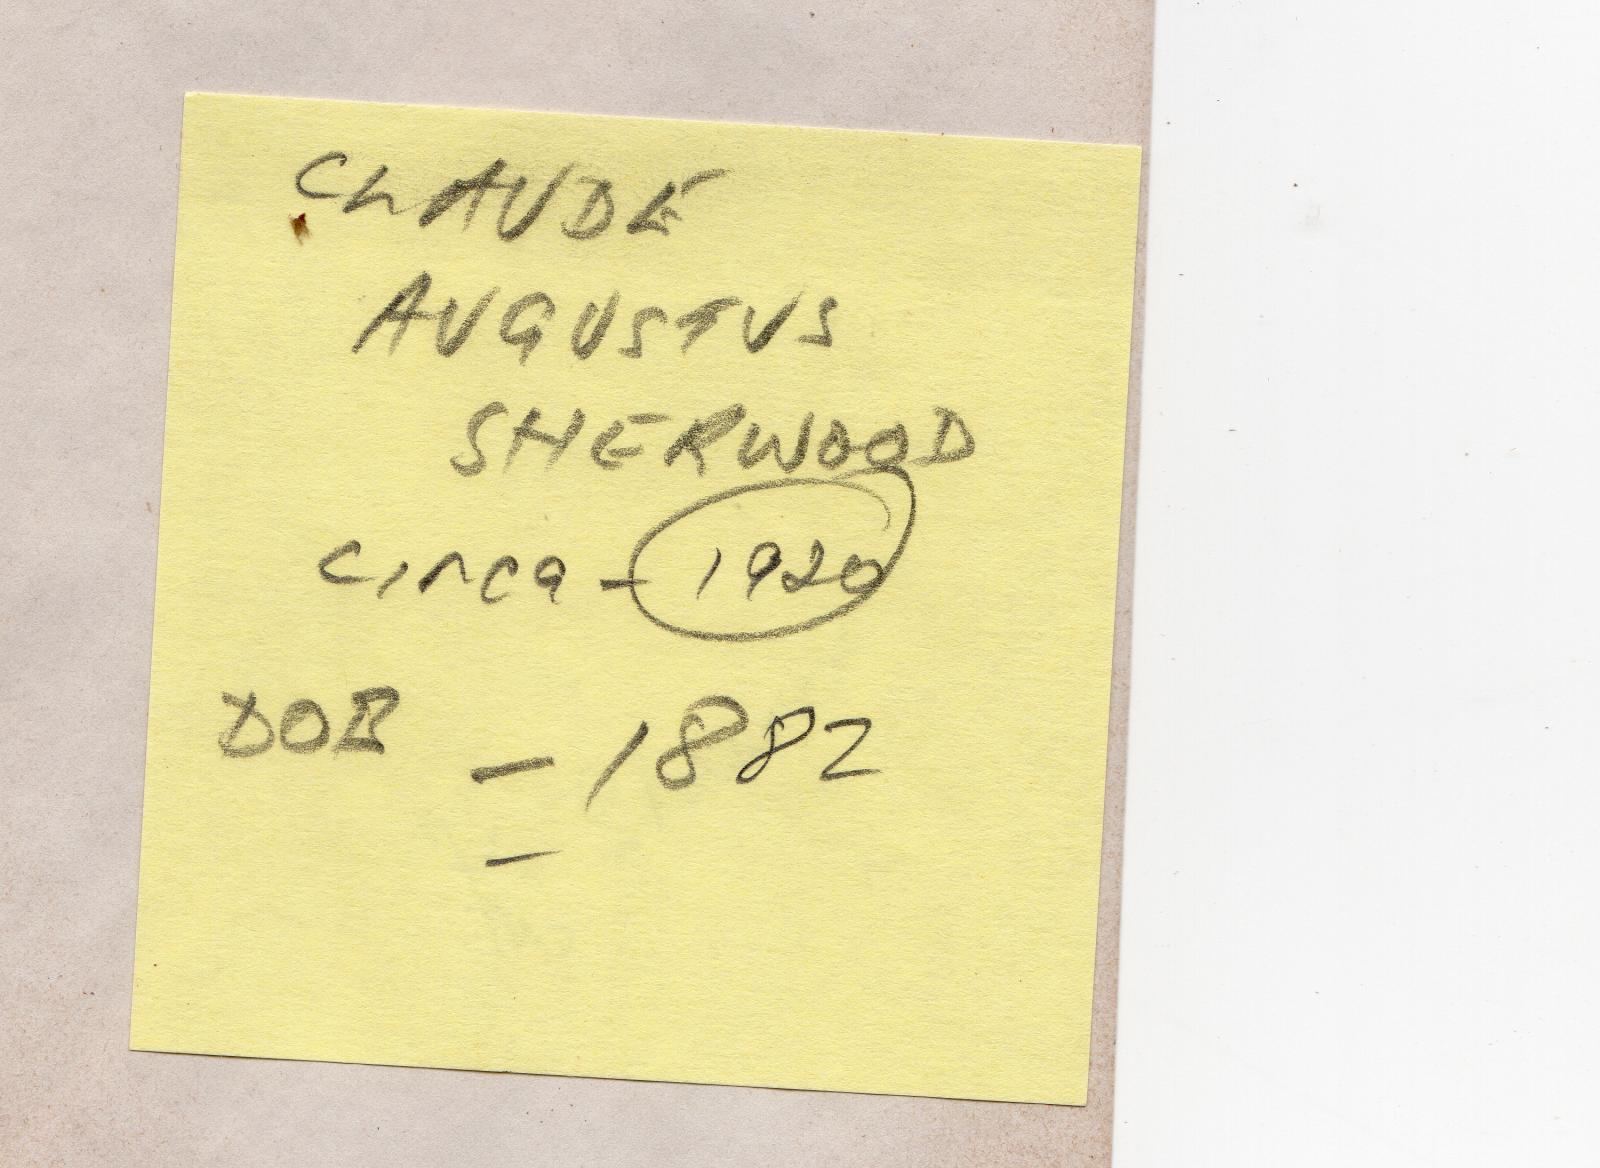 CLAUDE
AUGUSTUS
SHERWOOD
circa - 1920
DOB - 1882
-